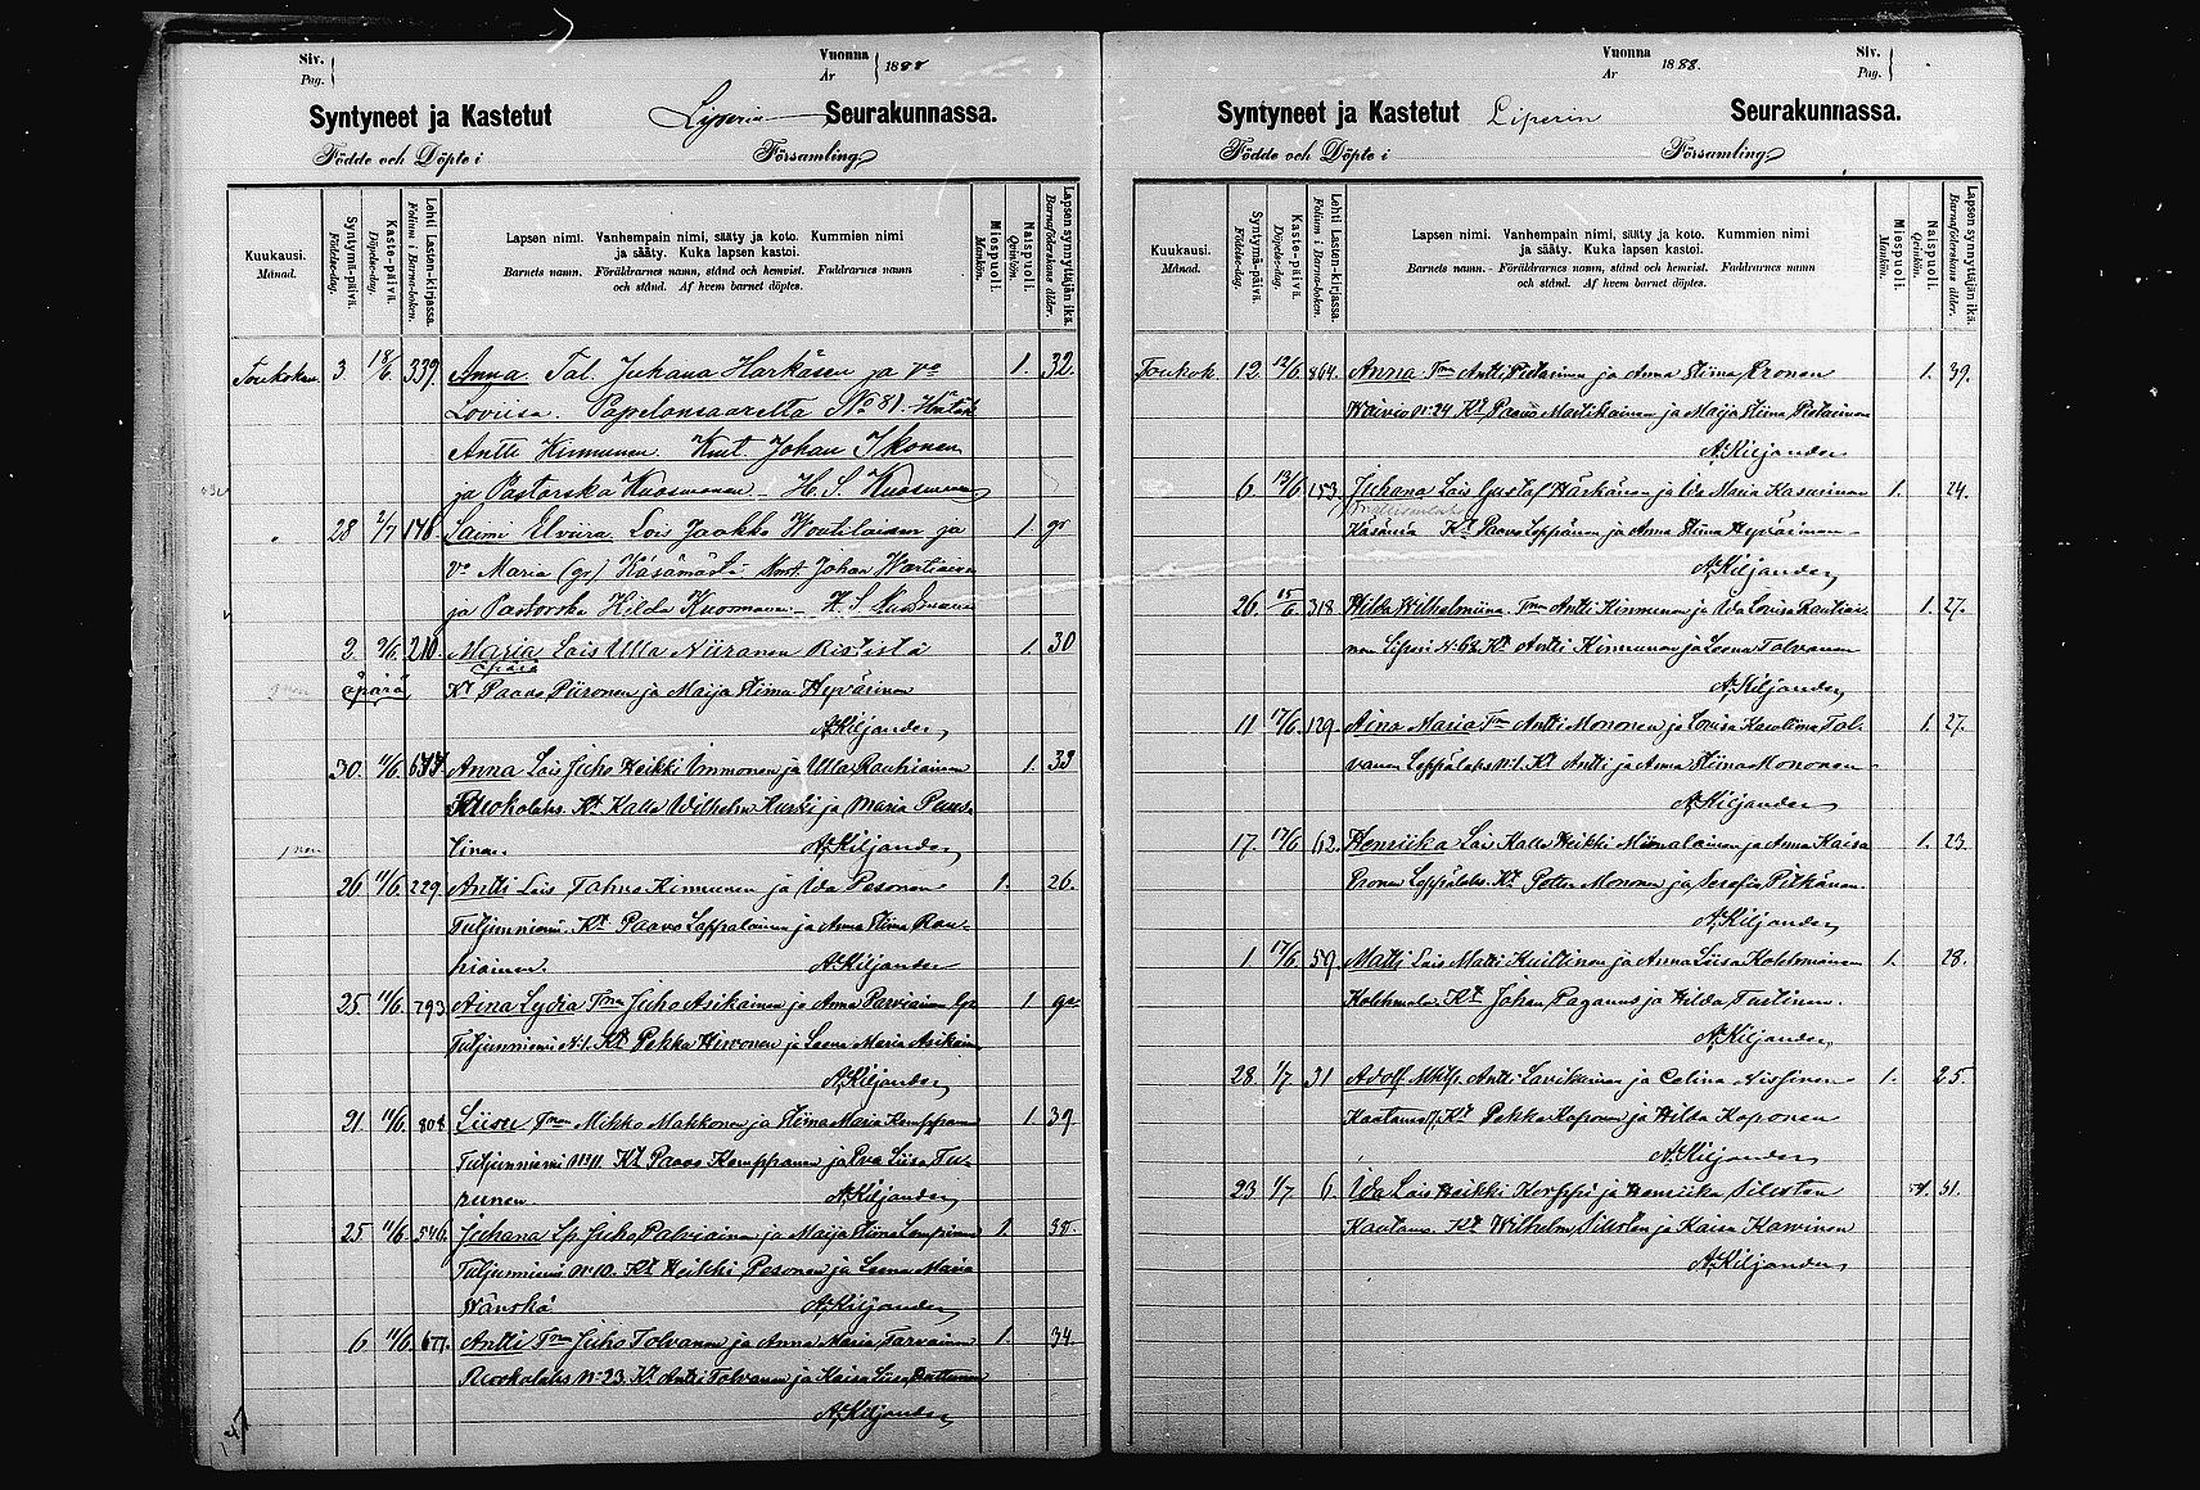 Siv.
Pag.
Vuonna
År
1888
Syntyneet ja Kastetut Liperin Seurakunnassa.
Födde och Döpte i Församling
Kuukausi.
Månad.
Syntymä-päivä.
Födelse-dag.
Kaste-päivä.
Döpelse-dag.
Lehti Lasten-kirjassa.
Folium i Barna-boken.
Lapsen nimi. Vanhempain nimi, sääty ja koto. Kummien nimi
ja sääty. Kuka lapsen kastoi.
Barnets namn. Föräldrarnes namn, stånd och hemvist. Faddrarnes namn
och stånd. Af hvem barnet döptes.
Miespuoli.
Mankön.
Naispuoli.
Qvinkön.
Lapsen synnyttäjän ikä.
Barnaföderskans ålder.
Toukokuu 3 18/6 339. Anna Tal. Juhana Harkäsen ja Vo 1. 32.
Loviisa. Papelonsaarelta No 81.
Antti Kinnunen. Knt. Johan Ikonen
ja Pastorska Kuosmanen - H. S. Kuosmanen
28 2/7 148. Saimi Elviira Lois Jaakko Woutilaisen ja 1. gr
Vo Maria (gr) Käsämästä Knt. Johan Wartiainen
ja Pastorska Hilda Kuosmanen - H. S. Kuosmanen
2. 9/6 210. Maria Lois Ulla Niiranen Rististä 1. 30
äpärä
äpärä Kt Paavo Piironen ja Maija Stiina Hyvärinen
A. Kiljander
30. 11/6. 677 Anna Lois Juho Heikki Immonen ja Ulla Rauhiainen 1. 33
Ruokolaks. Kt Kalle Wilhelm Kurki ja Maria Puus-
tinen. A. Kiljander
26 11/6. 229. Antti Lois Tahvo Kinnunen ja Ida Pesonen 1. 26.
Tutjunniemi. Kt Paavo Lappalainen ja Anna Stiina Rau-
hiainen. A. Kiljander
25. 11/6. 793 Aina Lydia Tmn Juho Asikainen ja Anna Parviainen 1 gr
Tutjunniemi N:1. Kt Pekka Hirvonen ja Leena Maria Asikainen
A. Kiljander
21. 11/6. 808 Liisu Tmn Mikko Makkonen ja Stiina Maria Kemppanen 1. 39
Tutjunniemi N:11 Kt Paavo Kemppanen ja Eva Liisa Tu-
runen. A. Kiljander
25 11/6 546. Juhana Lp. Juho Palviainen ja Maija Stiina Lempinen 1. 30.
Tutjunniemi N:10. Kt Heikki Pesonen ja Leena Maria
Wänskä A. Kiljander
6 11/6. 677. Antti Tmn Juho Tolvanen ja Anna Maria Tarvainen 1. 34.
Ruokolaks N:23. Kt Antti Tolvanen ja Kaisa Liisa
A. Kiljander
147
Vuonna
År
1888.
Siv.
Pag.
Syntyneet ja Kastetut Liperin Seurakunnassa.
Födde och Döpte i Församling
Kuukausi.
Månad.
Syntymä-päivä.
Födelse-dag.
Kaste-päivä.
Döpelse-dag.
Lehti Lasten-kirjassa.
Folium i Barna-boken.
Lapsen nimi. Vanhempain nimi, sääty ja koto. Kummien nimi
ja sääty. Kuka lapsen kastoi.
Barnets namn. - Föräldrarnes namn, stånd och hemvist. Faddrarnes namn
och stånd. Af hvem barnet döptes.
Miespuoli.
Mankön.
Naispuoli.
Qvinkön.
Lapsen synnyttäjän ikä.
Barnaföderskans ålder.
Toukok. 12. 12/6. 864. Anna Tmn Antti Pietarinen ja Anna Stiina Eronen 1. 39.
Waivio N:24 Kt Paavo Martikainen ja Maija Stiina Pietarinen
A. Kiljander
6. 13/6 153. Juhana Lois Gustaf Härkänen ja Ida Maria Kasurinen 1. 24.
Käsämä Kt Paavo Leppänen ja Anna Stiina Hyvärinen
A. Kiljander
26. 15/6 318 Hilda Wilhelmiina. Tmn Antti Kinnunen ja Ida Lovisa Rautiai- 1. 27.
nen Liperi N:62. Kt Antti Kinnunen ja Leena Tolvanen
A. Kiljander
11 17/6. 129. Aina Maria Tmn Antti Mononen ja Lovisa Karoliina Tol- 1. 27.
vanen Leppälaks N:1. Kt Antti ja Anna Stiina Mononen
A. Kiljander
17. 17/6 62. Henriika Lois Kalle Heikki Miinalainen ja Anna Kaisa 1. 23.
Eronen Leppälaks. Kt Petter Mononen ja Serafia Pitkänen.
A. Kiljander
1. 17/6. 59. Matti Lois Matti Kuittinen ja Anna Liisa Kolehmainen 1. 28.
Kolehmala. Kt Johan Paganus ja Hilda Tuttinen.
A. Kiljander
28. 1/7. 31 Adolf Mkilp. Antti Lavikainen ja Celina Nissinen 1. 25.
Kaatamo, Kt Pekka Kaponen ja Hilda Kaponen
A. Kiljander
23 1/7 6. Ida Lois Heikki Korppi ja Henriika Silvsten 31.
Kaatamo. Kt Wilhelm Silvsten ja Kaisa Karvinen
A. Kiljander